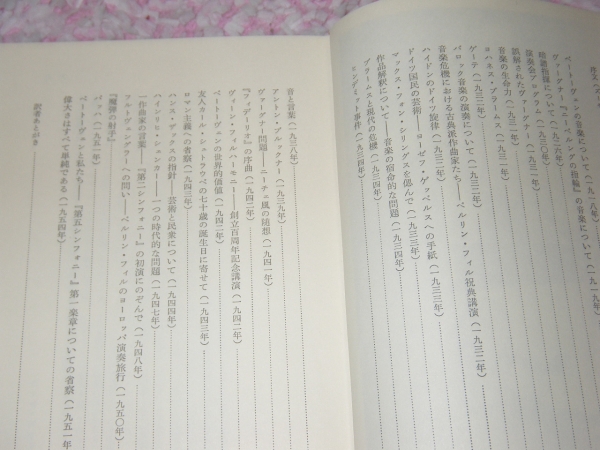 序文（ベ
ベートーヴェンの音楽について（一九一八年）
ヴァーグナー『ニーベルングの指輪』の音楽について（一九一九年）
暗譜指揮について（一九二六年）
演奏会プログラム（一九三〇年）
誤解されたヴァーグナー（一九三一年）
音楽の生命力（一九三一年）
ヨハネス・ブラームス（一九三一年）
ゲーテ（一九三二年）
バロック音楽の演奏について（一九三二年）
音楽危機における古典派作曲家たち――ベルリン・フィル祝典講演（一九三二年）
ハイドンのドイツ旋律（一九三二年）
ドイツ国民の芸術――ヨーゼフ・ゲッベルスへの手紙（一九三三年）
マックス・フォン・シリングスを偲んで（一九三三年）
作品解釈について――音楽の宿命的な問題（一九三四年）
ブラームスと現代の危機（一九三四年）
ヒンデミット事件（一九三四年）
音と言葉（一九三八年）
アントン・ブルックナー（一九三九年）
ヴァーグナー問題――ニーチェ風の随想（一九四一年）
『フィデーリオ』の序曲（一九四二年）
ヴィーン・フィルハーモニー――創立百周年記念講演（一九四二年）
ベートーヴェンの世界的価値（一九四二年）
友人カール・シュトラウベの七十歳の誕生日に寄せて（一九四三年）
ロマン主義への省察（一九四三年）
ハンス・ザックスの指針――芸術と民衆について（一九四四年）
ハインリヒ・シェンカー――一つの時代的な問題（一九四七年）
一作曲家の言葉――『第二シンフォニー』の初演にのぞんで（一九四八年）
フルトヴェングラーへの問い――ベルリン・フィルのヨーロッパ演奏旅行（一九五〇年）
『魔弾の射手』
バッハ（一九五一年）
ベートーヴェンと私たち――『第五シンフォニー』第一楽章についての省察（一九五一年
偉大さはすべて単純である（一九五四年）
訳者あとがき